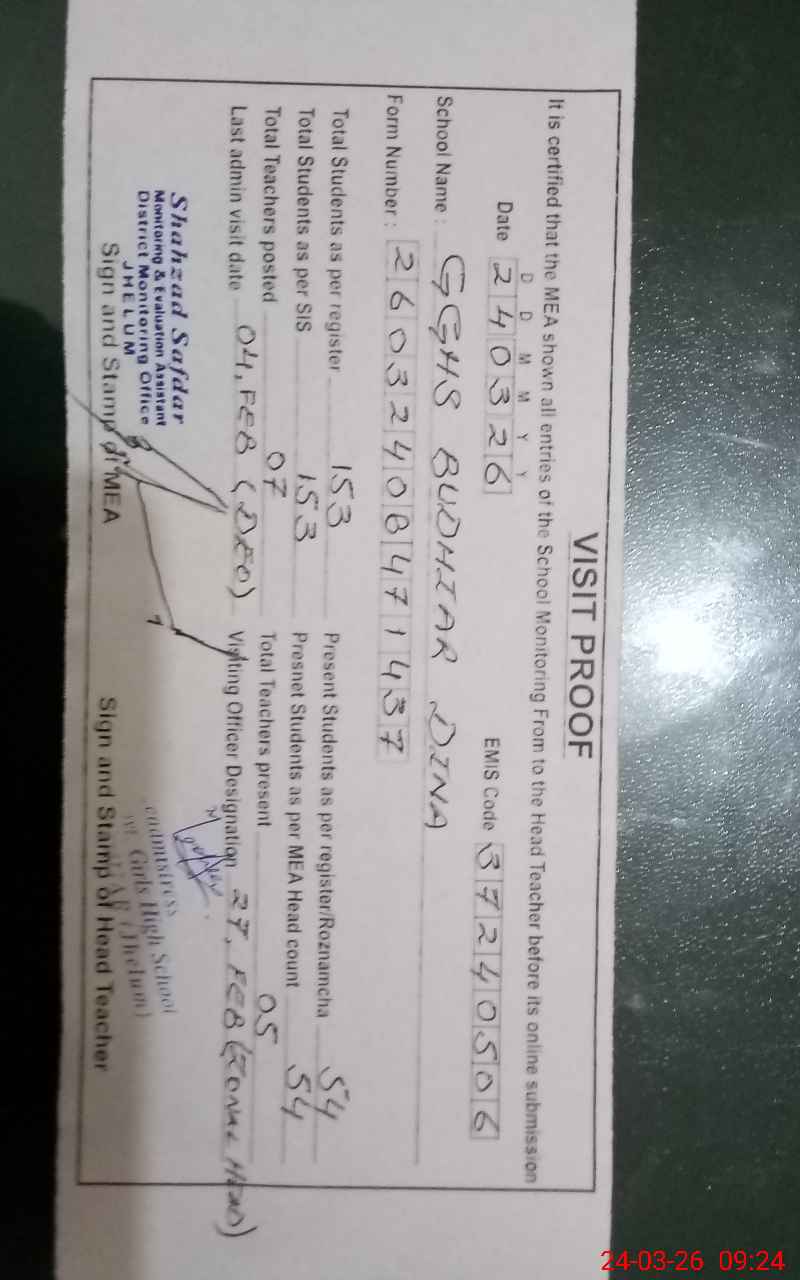 VISIT PROOF
It is certified that the MEA shown all entries of the School Monitoring From to the Head Teacher before its online submission
D D M M Y Y
Date 240326 EMIS Code 37240506
School Name : GGHS BUDHIAR DINA
Form Number : 26032408471437
Total Students as per register 153 Present Students as per register/Roznamcha 54
Total Students as per SIS 153 Presnet Students as per MEA Head count 54
Total Teachers posted 07 Total Teachers present 05
Last admin visit date 04, FEB (DEO) Visiting Officer Designation 27, FEB (Zonal Head)
Shahzad Safdar
Monitoring & Evaluation Assistant
District Monitoring Office
JHELUM
Sign and Stamp of MEA
Girls High School
(Jhelum)
Sign and Stamp of Head Teacher
24-03-26 09:24